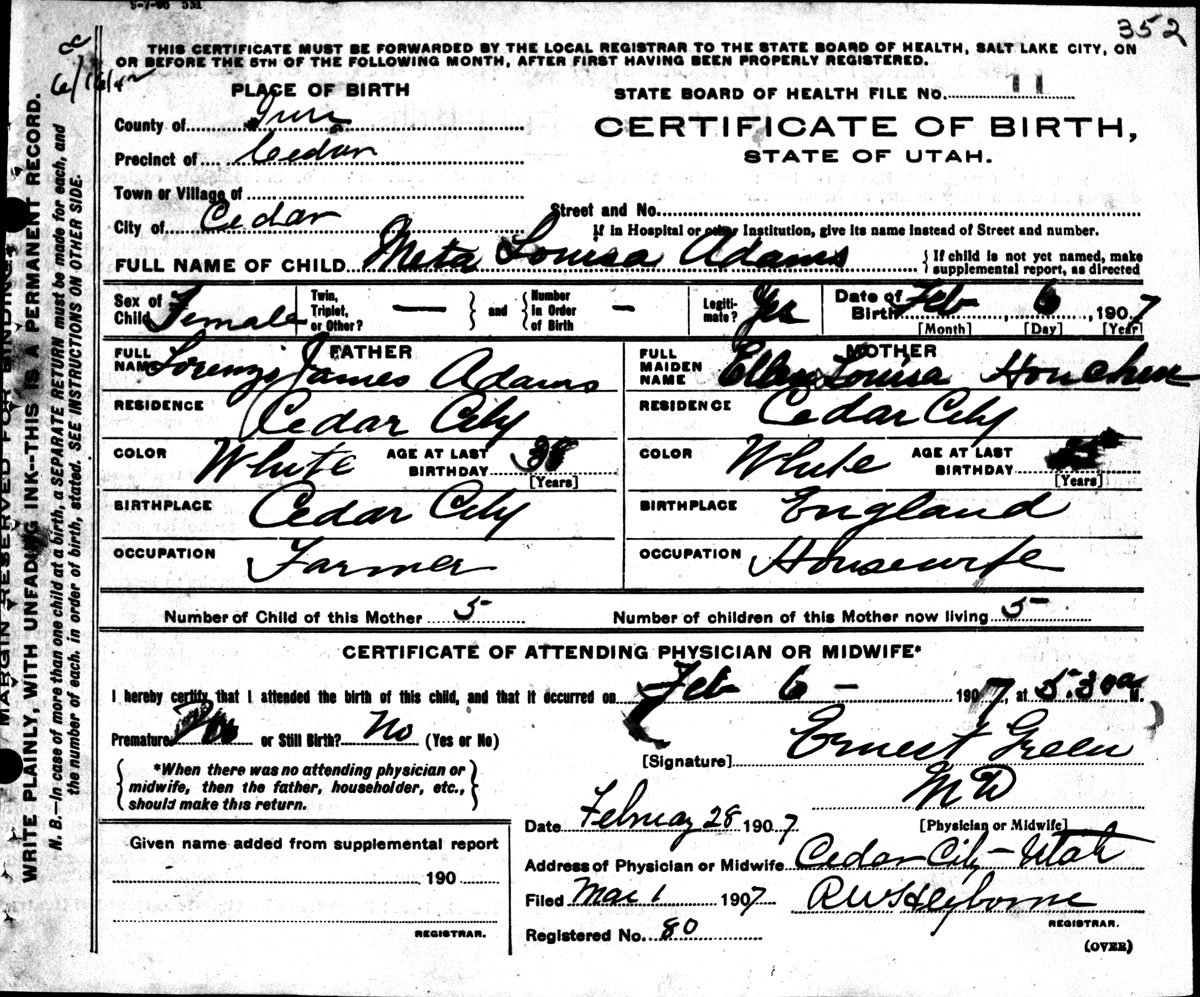 352
THIS CERTIFICATE MUST BE FORWARDED BY THE LOCAL REGISTRAR TO THE STATE BOARD OF HEALTH, SALT LAKE CITY, ON
OR BEFORE THE 5TH OF THE FOLLOWING MONTH, AFTER FIRST HAVING BEEN PROPERLY REGISTERED.
MARGIN RESERVED FOR BINDING
WRITE PLAINLY, WITH UNFADING INK--THIS IS A PERMANENT RECORD.
N. B.—In case of more than one child at a birth, a SEPARATE RETURN must be made for each, and
the number of each, in order of birth, stated. SEE INSTRUCTIONS ON OTHER SIDE.
PLACE OF BIRTH
STATE BOARD OF HEALTH FILE No. 11
County of Iron
CERTIFICATE OF BIRTH,
Precinct of Cedar
STATE OF UTAH.
Town or Village of
Street and No.
City of Cedar
If in Hospital or other Institution, give its name instead of Street and number.
FULL NAME OF CHILD Meta Louisa Adams
{ If child is not yet named, make
supplemental report, as directed
Sex of Child Female
Twin, Triplet, or Other? —
} and {
Number In Order of Birth —
Legiti- mate? Yes
Date of Birth Feb 6, 1907
[Month] [Day] [Year]
FATHER
FULL NAME Lorenzo James Adams
RESIDENCE Cedar City
COLOR White AGE AT LAST BIRTHDAY 38
[Years]
BIRTHPLACE Cedar City
OCCUPATION Farmer
MOTHER
FULL MAIDEN NAME Ellen Louisa Houchen
RESIDENCE Cedar City
COLOR White AGE AT LAST BIRTHDAY
[Years]
BIRTHPLACE England
OCCUPATION Housewife
Number of Child of this Mother 5 Number of children of this Mother now living 5
CERTIFICATE OF ATTENDING PHYSICIAN OR MIDWIFE*
I hereby certify that I attended the birth of this child, and that it occurred on Feb 6 — 1907, at 5.30 a M.
Premature No or Still Birth? No (Yes or No)
[Signature] Ernest Green
M D
[Physician or Midwife]
{ *When there was no attending physician or
midwife, then the father, householder, etc.,
should make this return. }
Date February 28 1907
Given name added from supplemental report
190
REGISTRAR.
Address of Physician or Midwife Cedar City — Utah
Filed Mar 1 1907 R W Heyborne
REGISTRAR.
Registered No. 80
(OVER)